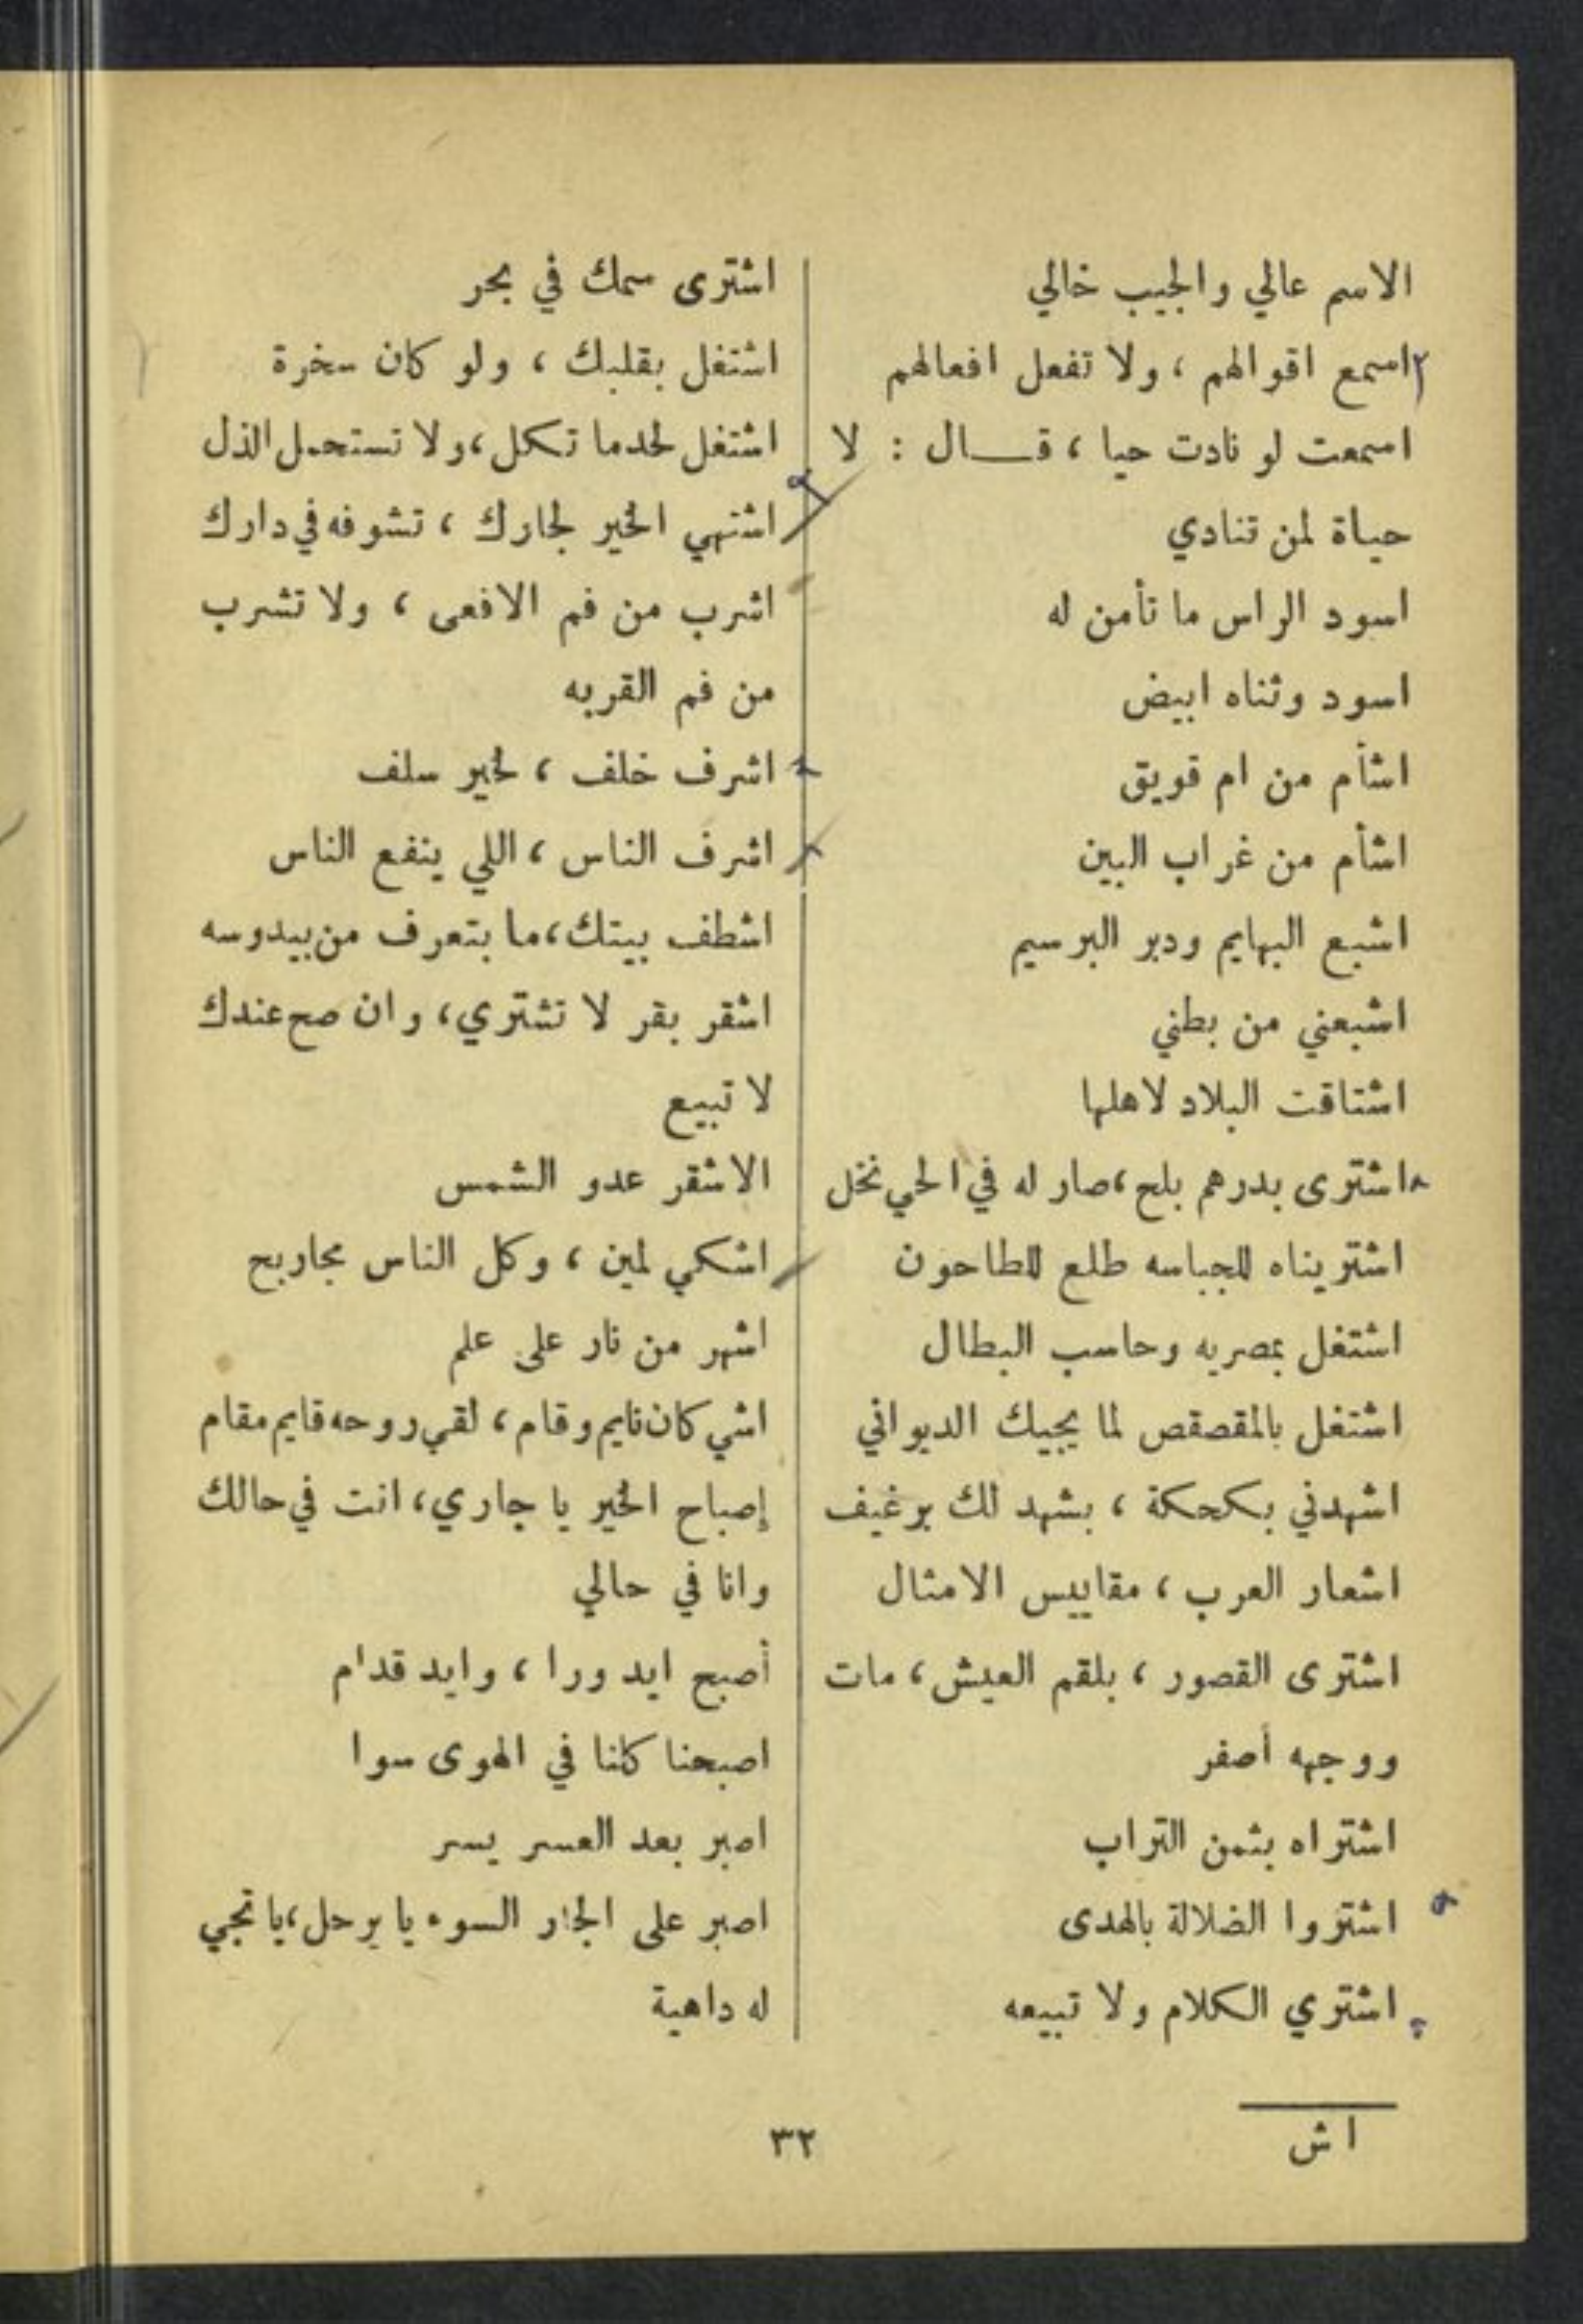 الاسم عالي والجيب خالي
اسمع اقوالهم ، ولا تفعل افعالهم
اسمعت لو نادت حيا ، قــال : لا
حياة لمن تنادي
اسود الراس ما تأمن له
اسود وثناه ابيض
اشأم من ام قويق
اشأم من غراب البين
اشبع البهايم ودبر البرسيم
اشبعني من بطني
اشتاقت البلاد لاهلها
اشترى بدرهم بلح ، صار له في الحي نخل
اشتريناه للجباسه طلع للطاحون
اشتغل بمصريه وحاسب البطال
اشتغل بالمقصقص لما يجيك الديواني
اشهدني بكحكة ، بشهد لك برغيف
اشعار العرب ، مقاييس الامثال
اشترى القصور ، بلقم العيش ، مات
ووجهه أصفر
اشتراه بثمن التراب
اشتروا الضلالة بالهدى
اشتري الكلام ولا تبيعه
اشترى سمك في بحر
اشتغل بقلبك ، ولو كان سخرة
اشتغل لحدما تكل ، ولا تستحمل الذل
اشتهي الخير لجارك ، تشوفه في دارك
اشرب من فم الافعى ، ولا تشرب
من فم القربه
اشرف خلف ، لخير سلف
اشرف الناس ، اللي ينفع الناس
اشطف بيتك ، ما بتعرف من بيدوسه
اشقر بقر لا تشتري ، وان صح عندك
لا تبيع
الاشقر عدو الشمس
اشكي لمين ، وكل الناس مجاريح
اشهر من نار على علم
اشي كان نايم وقام ، لقي روحه قايم مقام
إصباح الخير يا جاري ، انت في حالك
وانا في حالي
أصبح ايد ورا ، وايد قدام
اصبحنا كلنا في الهوى سوا
اصبر بعد العسر يسر
اصبر على الجار السوء يا يرحل ، يا تجي
له داهية
ا ش
٣٢